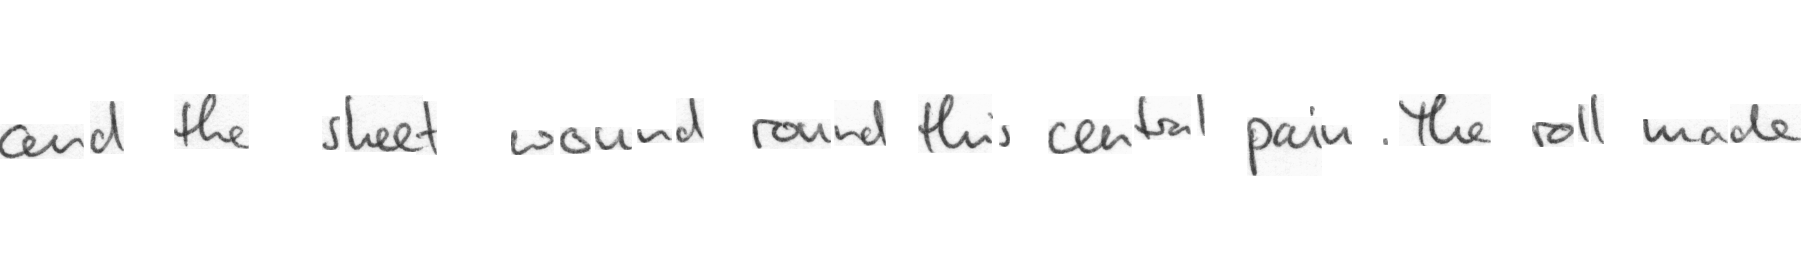 and the sheet wound round this central pain. The roll made